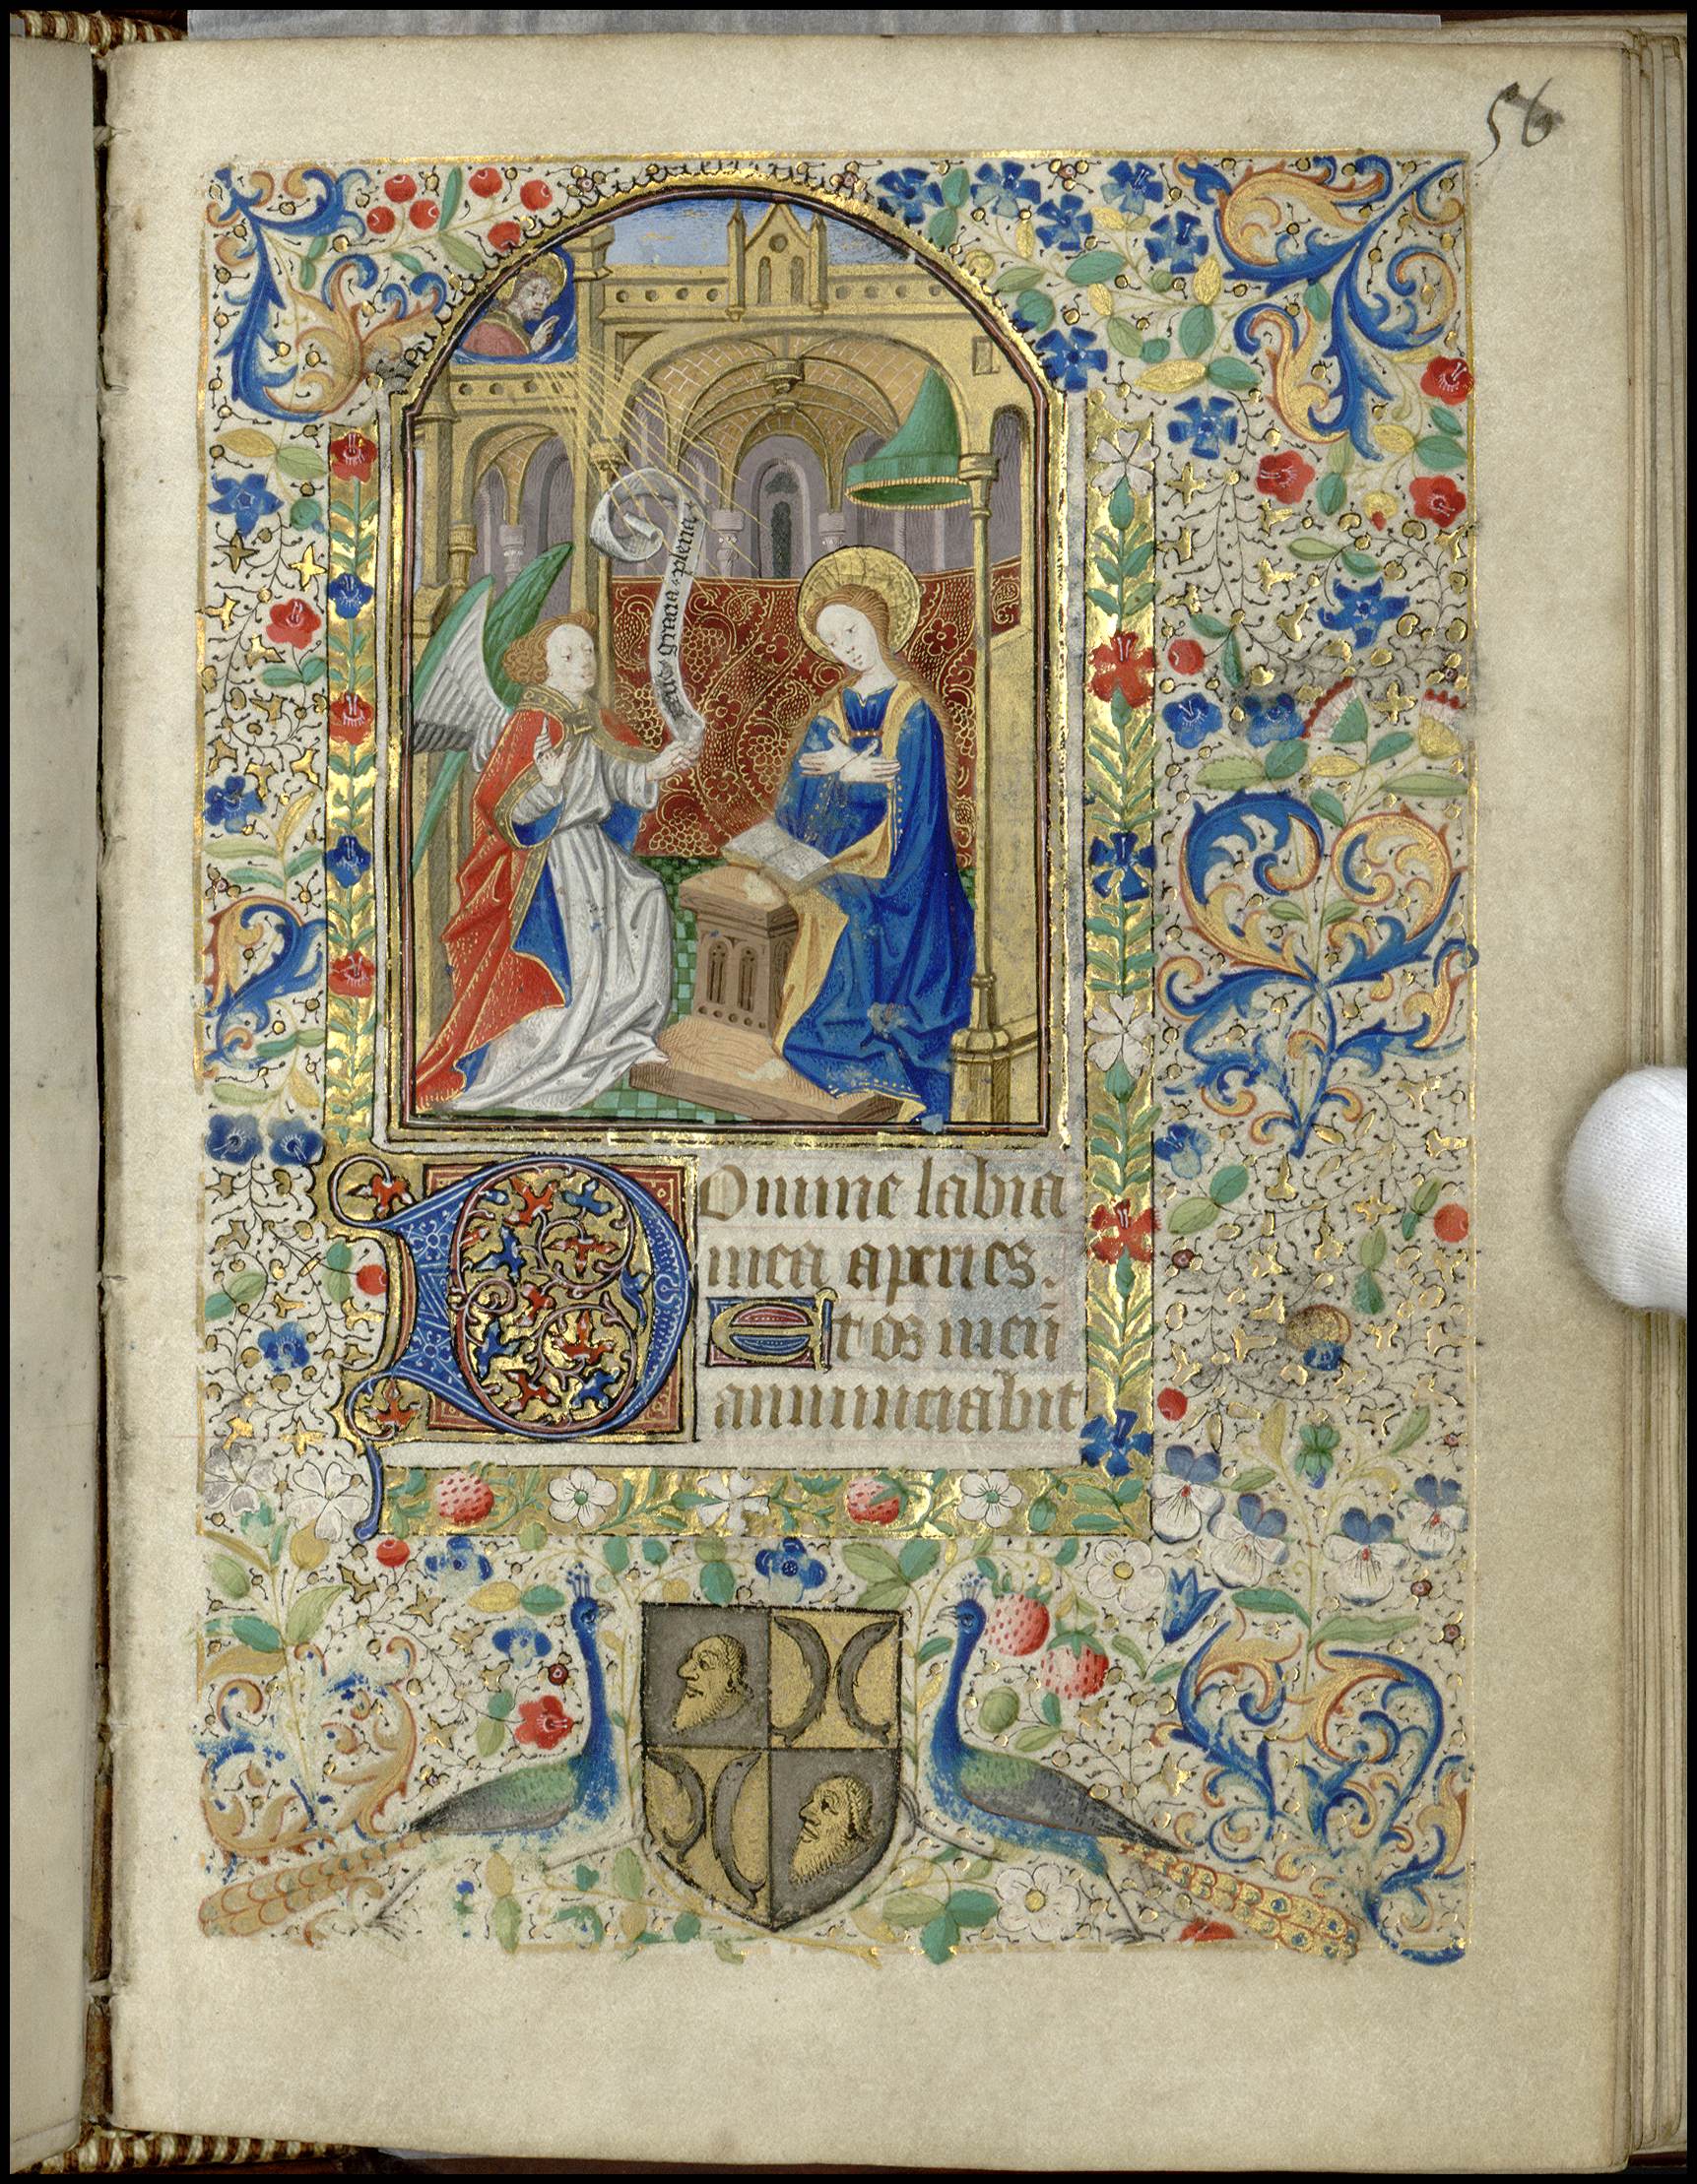 56
aue gracia plena
Domine labia
mea aperies.
Et os meū
annunciabit